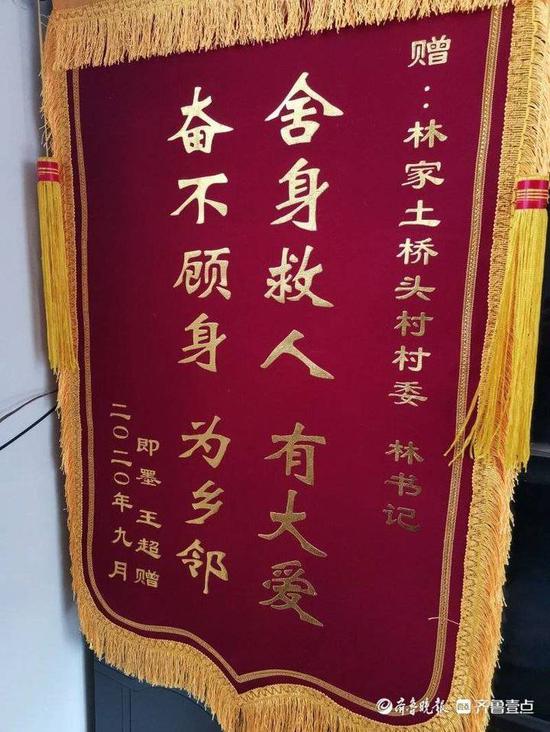 赠：林家土桥头村村委 林书记
舍身救人 有大爱
奋不顾身 为乡邻
即墨 王超赠
二〇二〇年九月
齐鲁晚报 齐鲁壹点